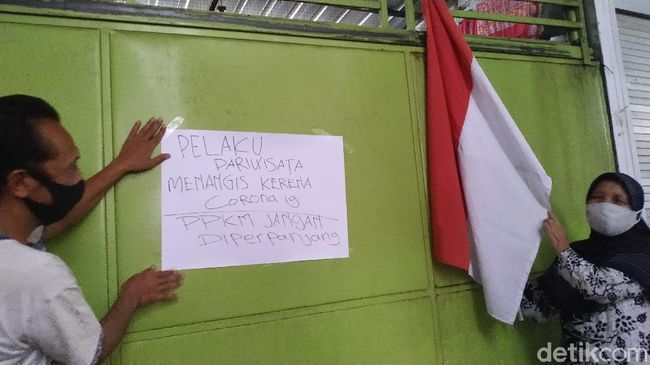 PELAKU
PARIWISATA
MENANGIS KERENA
Corona 19
PPKM JANGAN
Diperpanjang
detikcom